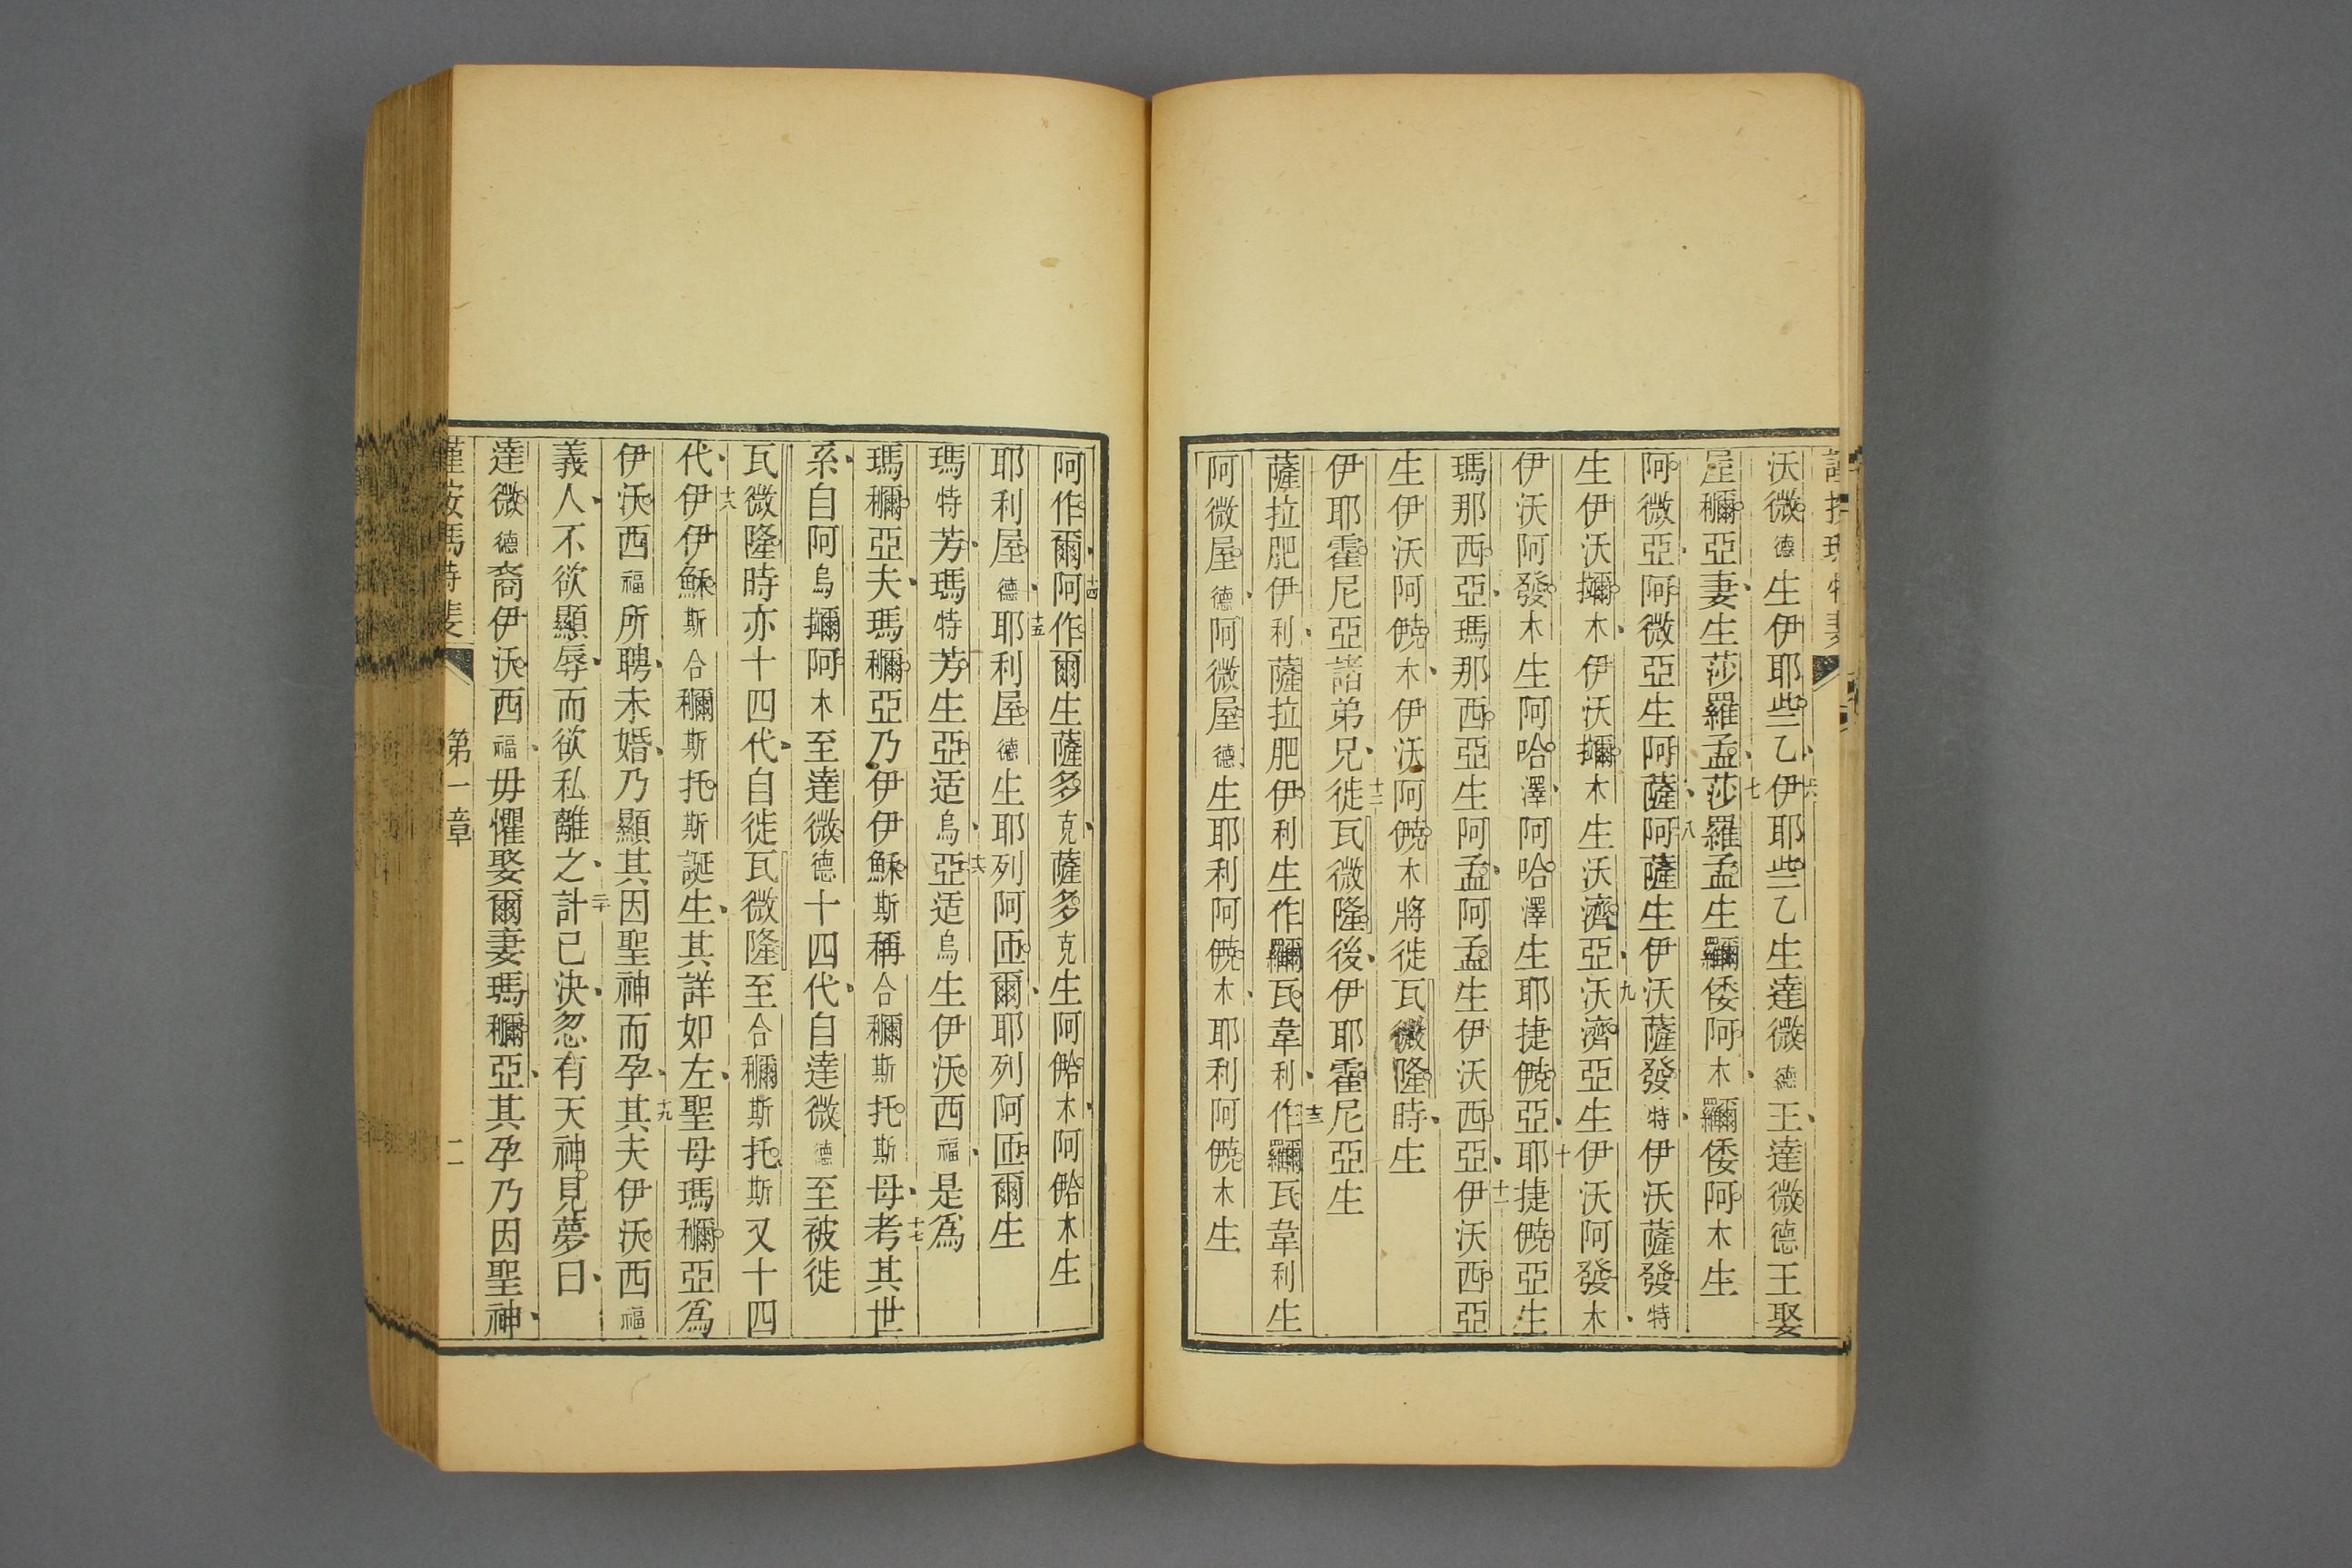 沃微德生伊耶些乙六伊耶些乙生達微德王達微德王娶
屋穪亞妻生莎羅孟七莎羅孟生羅倭阿木羅倭阿木生
阿微亞阿微亞生阿薩八阿薩生伊沃薩發特伊沃薩發特
生伊沃木伊沃木生沃濟亞九沃濟亞生伊沃阿發木
伊沃阿發木生阿哈澤阿哈澤生耶捷亞十耶捷亞生
瑪那西亞瑪那西亞生阿孟阿孟生伊沃西亞十一伊沃西亞
生伊沃阿木伊沃阿木將徙瓦微隆時生
伊耶霍尼亞諸弟兄十二徙瓦微隆後伊耶霍尼亞生
薩拉肥伊利薩拉肥伊利生作瓦韋利十三作瓦韋利生
阿微屋德阿微屋德生耶利阿木耶利阿木生
阿作爾十四阿作爾生薩多克薩多克生阿木阿木生
耶利屋德十五耶利屋德生耶列阿匝爾耶列阿匝爾生
瑪特芳瑪特芳生亞适烏十六亞适烏生伊沃西福是為
瑪穪亞夫瑪穪亞乃伊伊穌斯稱合穪斯托斯母十七考其世
系自阿烏阿木至達微德十四代自達微德至被徙
瓦微隆時亦十四代自徙瓦微隆至合穪斯托斯又十四
代十八伊伊穌斯合穪斯托斯誕生其詳如左聖母瑪穪亞為
伊沃西福所聘未婚乃顯其因聖神而孕十九其夫伊沃西福
義人不欲顯辱而欲私離之二十計已決忽有天神見夢曰
達微德裔伊沃西福毋懼娶爾妻瑪穪亞其孕乃因聖神
第一章 二